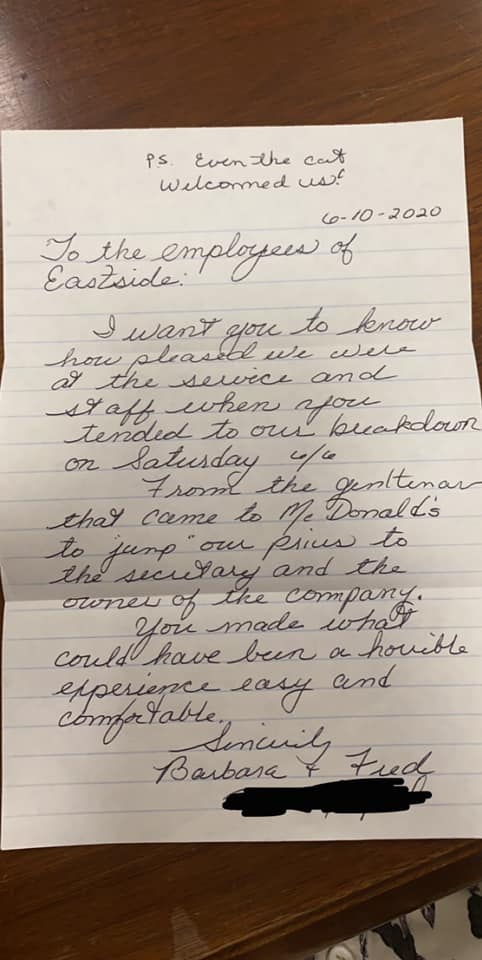 P.S. Even the cat
Welcomed us!
6-10-2020
To the employees of
Eastside:
I want you to know
how pleased we were
at the service and
staff when you
tended to our breakdown
on Saturday 6/6
From the genltenar
that came to McDonald's
to "jump" our prius to
the secretary and the
owner of the company.
You made what
could have been a horrible
experience easy and
comfortable.
Sincerily
Barbara & Fred